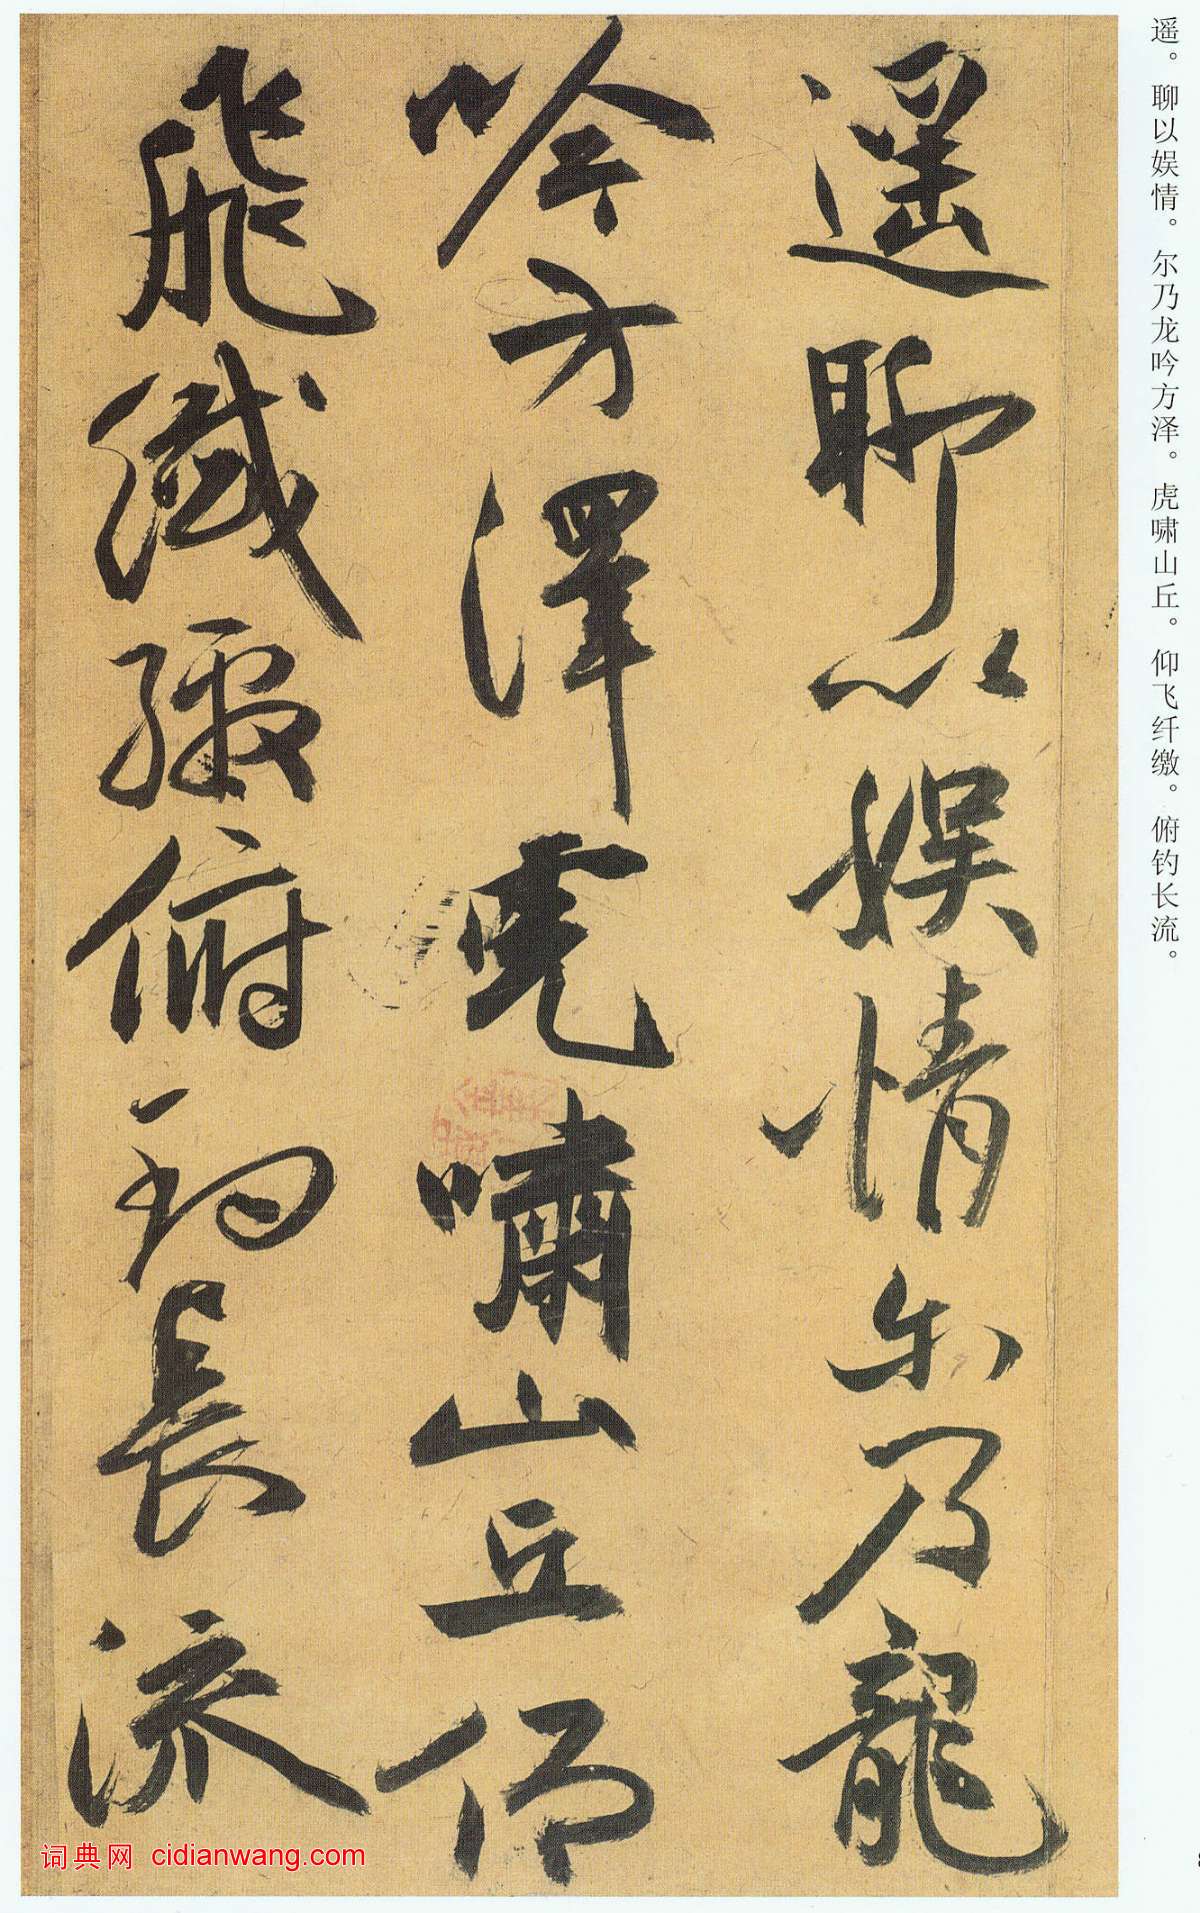 遥。聊以娱情。尔乃龙吟方泽。虎啸山丘。仰飞纤缴。俯钓长流。
遥聊以娱情尔乃龍
吟方澤虎嘯山丘仰
飛纖繳俯釣長流
词典网 cidianwang.com